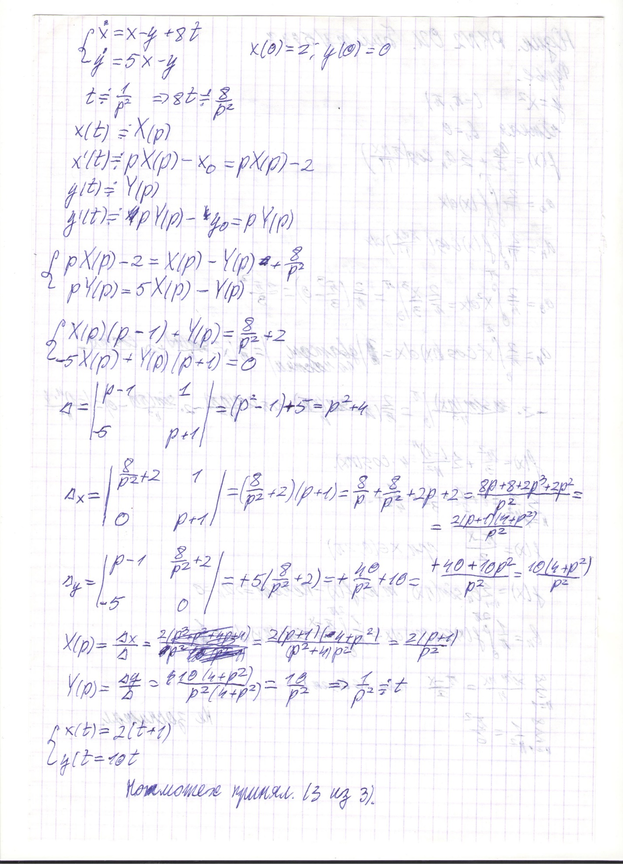 {ẋ = x - y + 8t    x(0) = 2; y(0) = 0
{y' = 5x - y
t ≓ 1/p² ⇒ 8t ≓ 8/p²
x(t) ≓ X(p)
x'(t) ≓ pX(p) - x₀ = pX(p) - 2
y(t) ≓ Y(p)
y'(t) ≓ pY(p) - y₀ = pY(p)
{pX(p) - 2 = X(p) - Y(p) + 8/p²
{pY(p) = 5X(p) - Y(p)
{X(p)(p-1) + Y(p) = 8/p² + 2
{-5X(p) + Y(p)(p+1) = 0
Δ = |p-1 1; -5 p+1| = (p²-1)+5 = p²+4
Δx = |8/p²+2 1; 0 p+1| = (8/p²+2)(p+1) = 8/p + 8/p² + 2p + 2 = (8p+8+2p³+2p²)/p² =
= 2(p+1)(4+p²)/p²
Δy = |p-1 8/p²+2; -5 0| = +5(8/p²+2) = + 40/p² + 10 = (+40+10p²)/p² = 10(4+p²)/p²
X(p) = Δx/Δ = 2(p+1)(4+p²)/(p²+4)p² = 2(p+1)/p²
Y(p) = Δy/Δ = 10(4+p²)/p²(4+p²) = 10/p² ⇒ 1/p² ≓ t
{x(t) = 2(t+1)
{y(t = 10t
принял. (3 из 3).